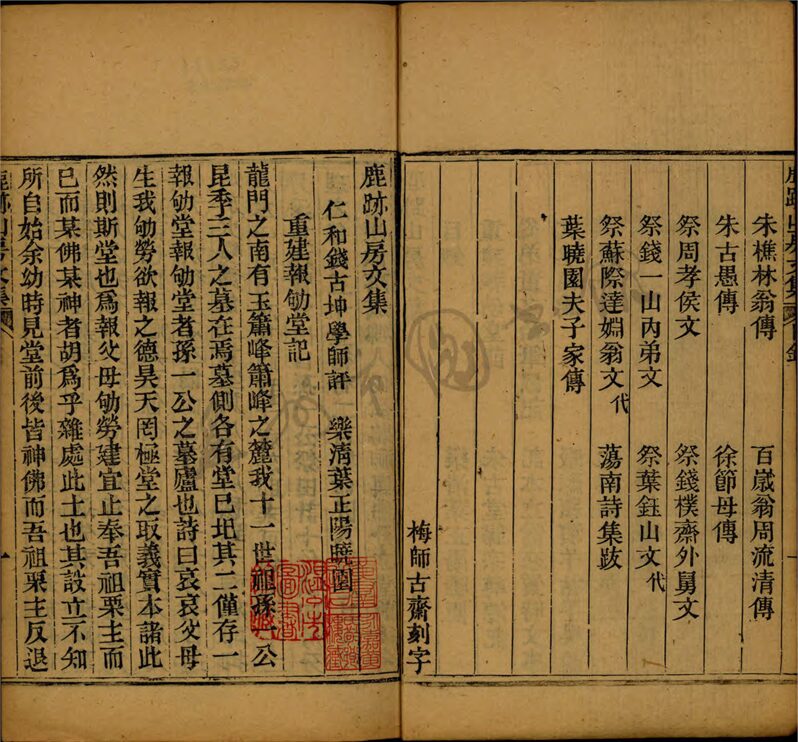 鹿跡山房文集 錄 一
朱樵林翁傳 百歲翁周流清傳
朱古愚傳 徐節母傳
祭周孝侯文 祭錢樸齋外舅文
祭錢一山內弟文 祭葉鈺山文代
祭蘇際達婣翁文代 蕩南詩集跋
葉曉園夫子家傳
梅師古齋刻字
鹿跡山房文集
仁和錢古坤學師評 樂清葉正陽曉園
重建報劬堂記
龍門之南有玉簫峰簫峰之麓我十一世祖孫一公
昆季三人之墓在焉墓側各有堂已圯其二僅存一
報劬堂報劬堂者孫一公之墓廬也詩曰哀哀父母
生我劬勞欲報之德昊天罔極堂之取義實本諸此
然則斯堂也爲報父母劬勞建宜止奉吾祖栗主而
已而某佛某神者胡爲乎雜處此土也其設立不知
所自始余幼時見堂前後皆神佛而吾祖栗主反退
鹿跡山房文集 一